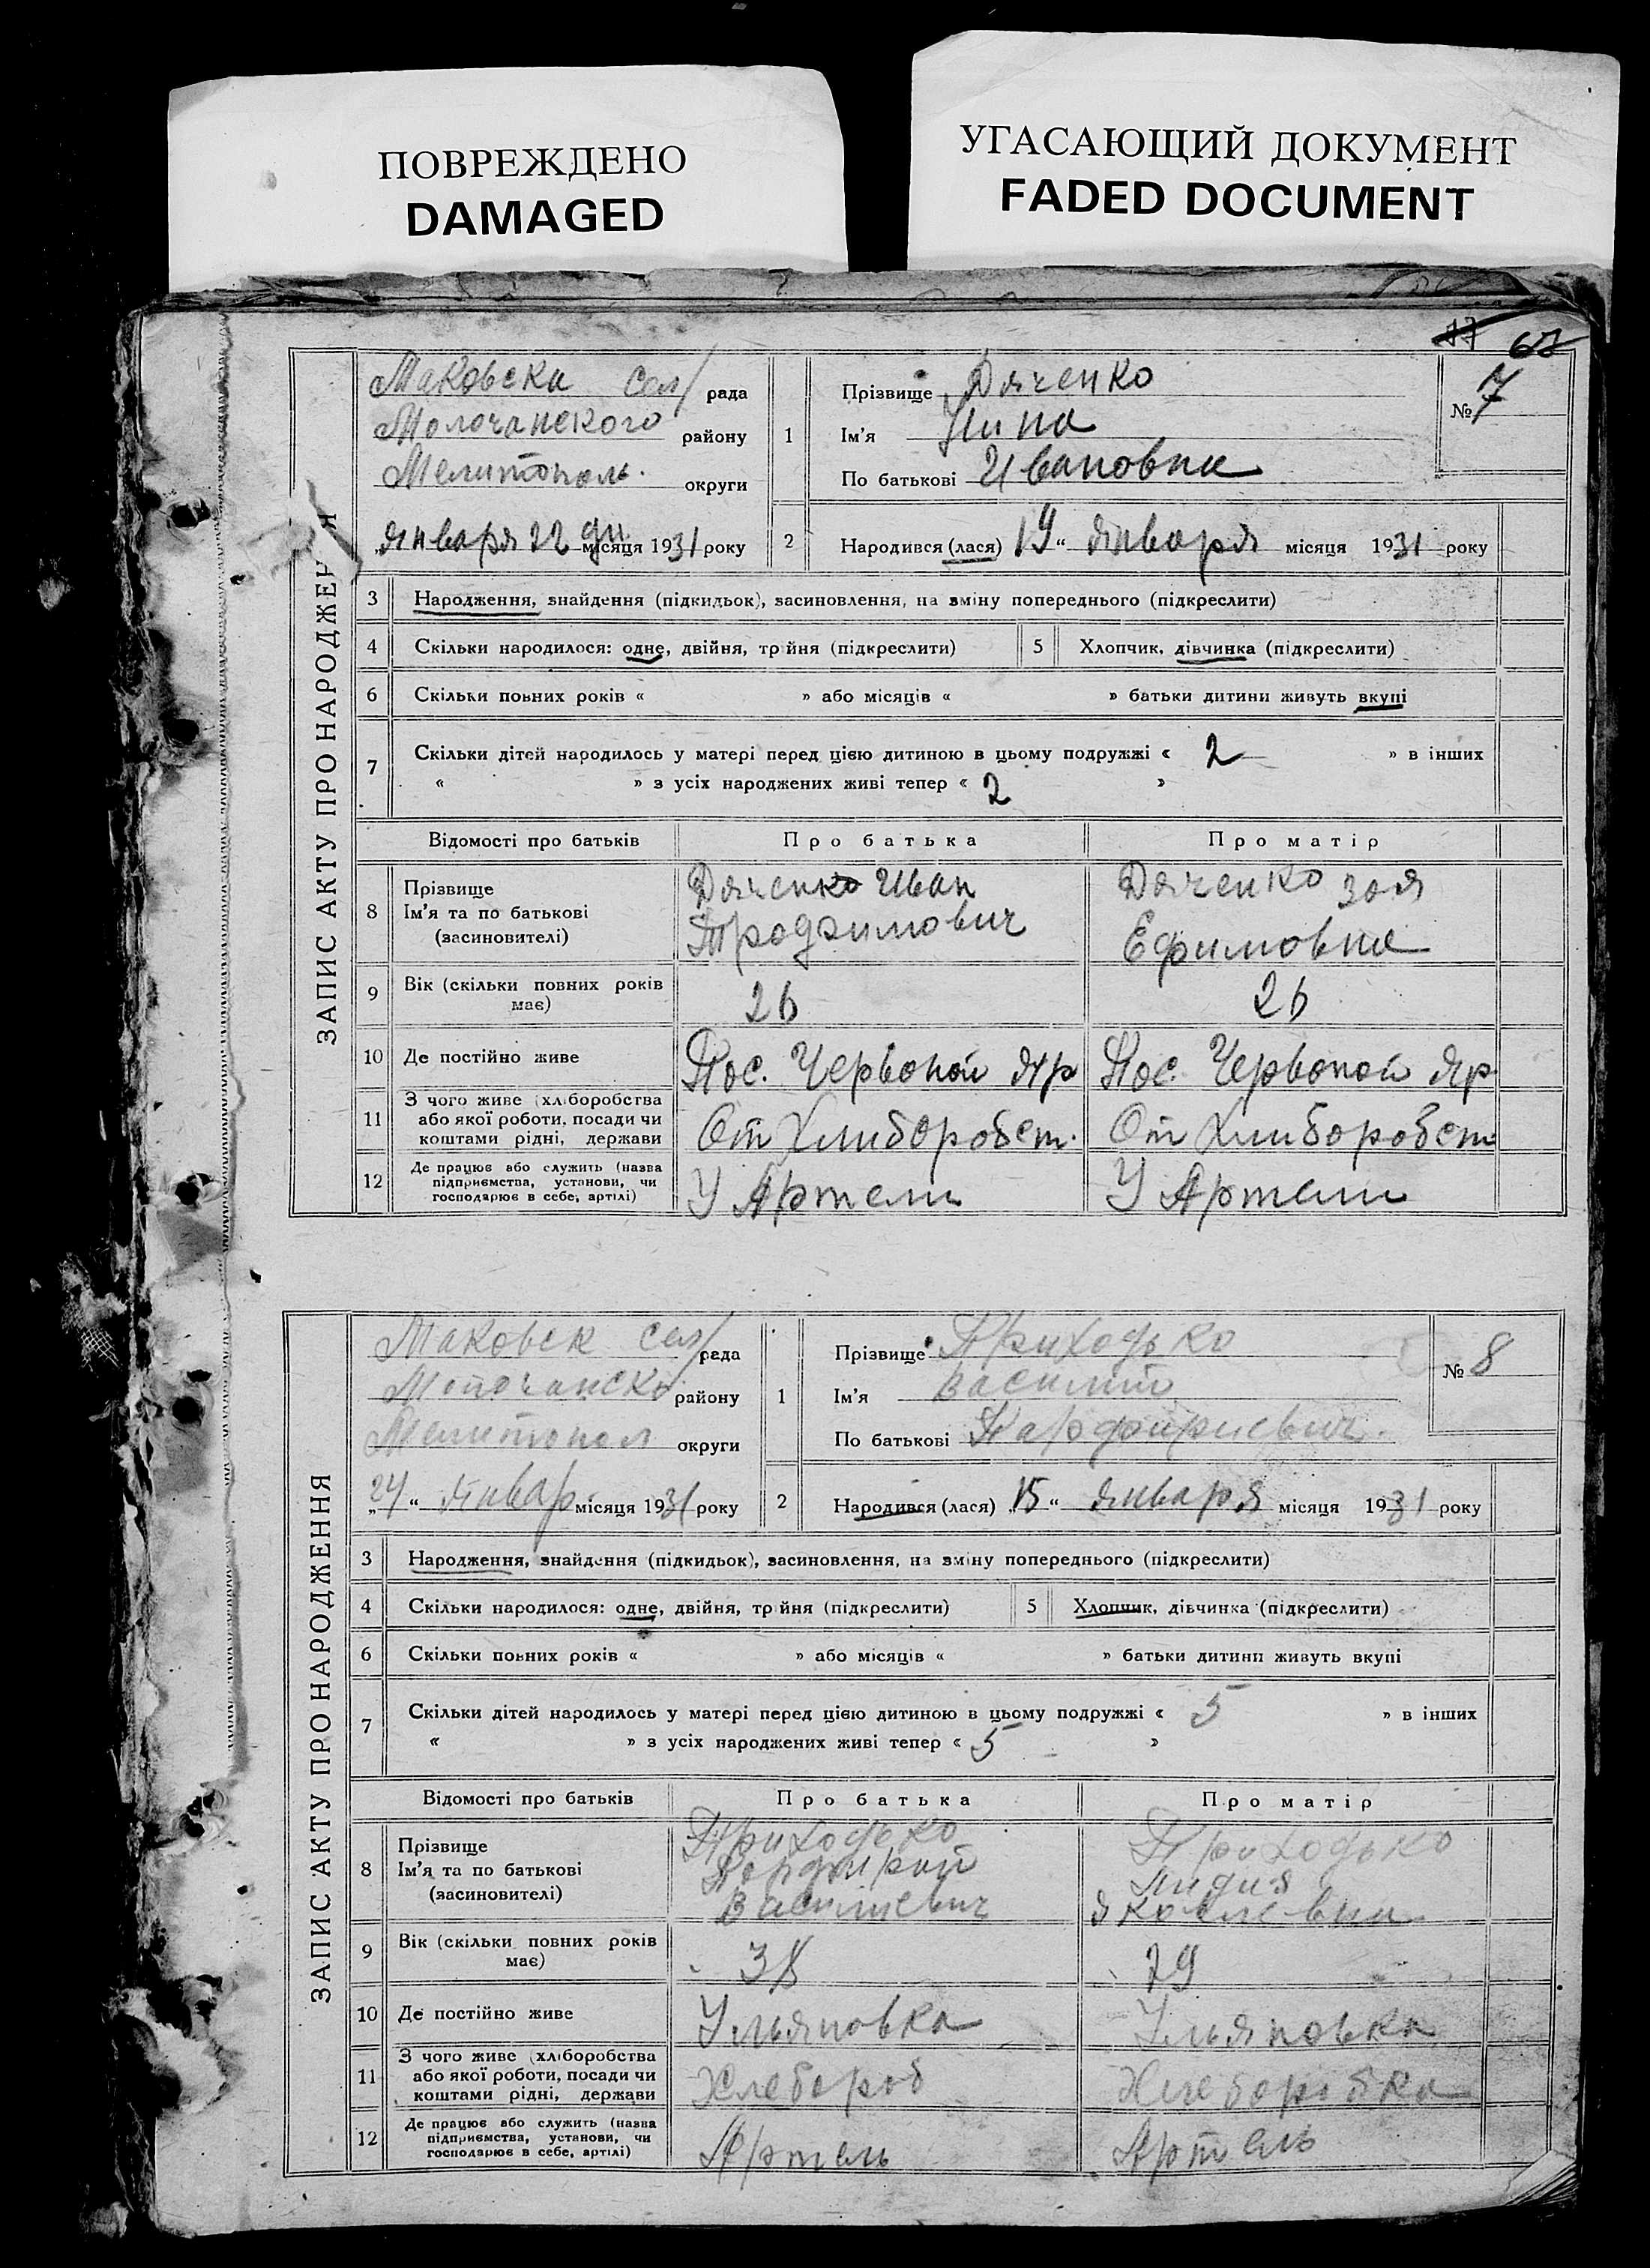 ПОВРЕЖДЕНО
DAMAGED
УГАСАЮЩИЙ ДОКУМЕНТ
FADED DOCUMENT
67
ЗАПИС АКТУ ПРО НАРОДЖЕН Я
Маковска сел/ рада
Молочанского району
Мелитополь. округи
„января 22 дн місяця 1931 року
1 Прізвище Дяченко
Ім'я Нина
По батькові Ивановна
№ 7
2 Народився (лася) 19 “ января місяця 1931 року
3 Народження, знайдення (підкидьок), засиновлення, на зміну попереднього (підкреслити)
4 Скільки народилося: одне, двійня, трійня (підкреслити) 5 Хлопчик, дівчинка (підкреслити)
6 Скільки повних років « » або місяців « » батьки дитини живуть вкупі
7 Скільки дітей народилось у матері перед цією дитиною в цьому подружжі « 2 » в інших
« » з усіх народжених живі тепер « 2 »
Відомості про батьків Про батька Про матір
8 Прізвище
Ім'я та по батькові
(засиновителі)
Дяченко Иван
Трофимович
Дяченко Зоя
Ефимовна
9 Вік (скільки повних років
має)
26 26
10 Де постійно живе Пос. Червоной Яр Пос. Червоной Яр
11 З чого живе (хліборобства
або якої роботи, посади чи
коштами рідні, держави
От Хлиборобст. От Хлиборобст
12 Де працює або служить (назва
підприємства, установи, чи
господарює в себе, артілі)
У Артели У Артели
ЗАПИС АКТУ ПРО НАРОДЖЕННЯ
Маковск сел/ рада
Молочанско району
Мелитопол округи
„24“ январ місяця 1931 року
1 Прізвище Приходько
Ім'я Василий
По батькові Парфириевич.
№ 8
2 Народився (лася) „15“ января місяця 1931 року
3 Народження, знайдення (підкидьок), засиновлення, на зміну попереднього (підкреслити)
4 Скільки народилося: одне, двійня, трійня (підкреслити) 5 Хлопчик, дівчинка (підкреслити)
6 Скільки повних років « » або місяців « » батьки дитини живуть вкупі
7 Скільки дітей народилось у матері перед цією дитиною в цьому подружжі « 5 » в інших
« » з усіх народжених живі тепер « 5 »
Відомості про батьків Про батька Про матір
8 Прізвище
Ім'я та по батькові
(засиновителі)
Приходько
Порфирий
Василиевич
Приходько
Лидия
Яковлевна
9 Вік (скільки повних років
має)
38
10 Де постійно живе Ульяновка Ульяновка
11 З чого живе (хліборобства
або якої роботи, посади чи
коштами рідні, держави
Хлебороб Хлеборобка
12 Де працює або служить (назва
підприємства, установи, чи
господарює в себе, артілі)
Артель Артель